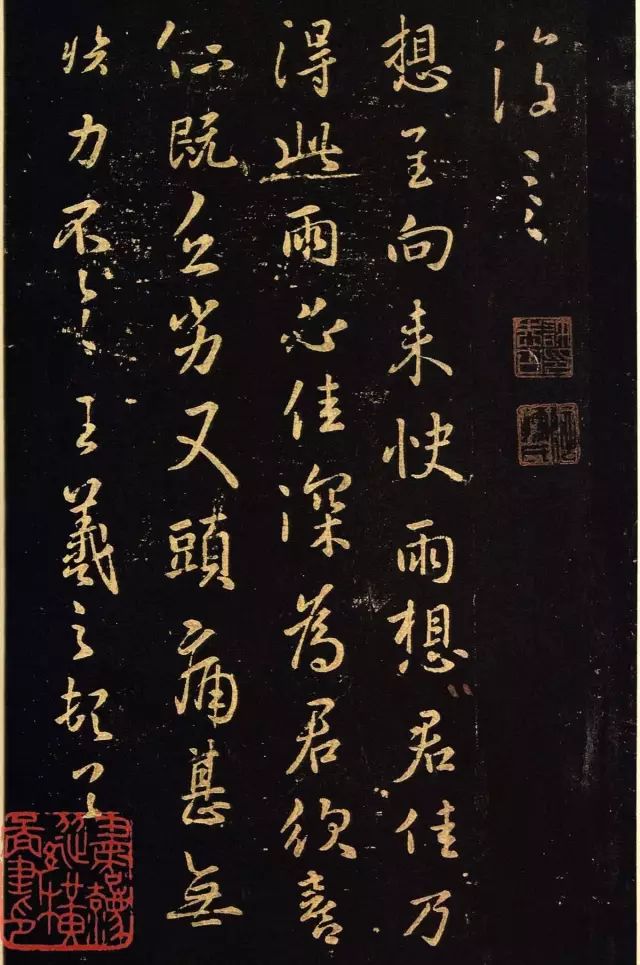 復
想至向来快雨想君佳乃
得此雨佳深為君欣喜
既乏劣又頭痛甚無
力不一一王羲之頓首